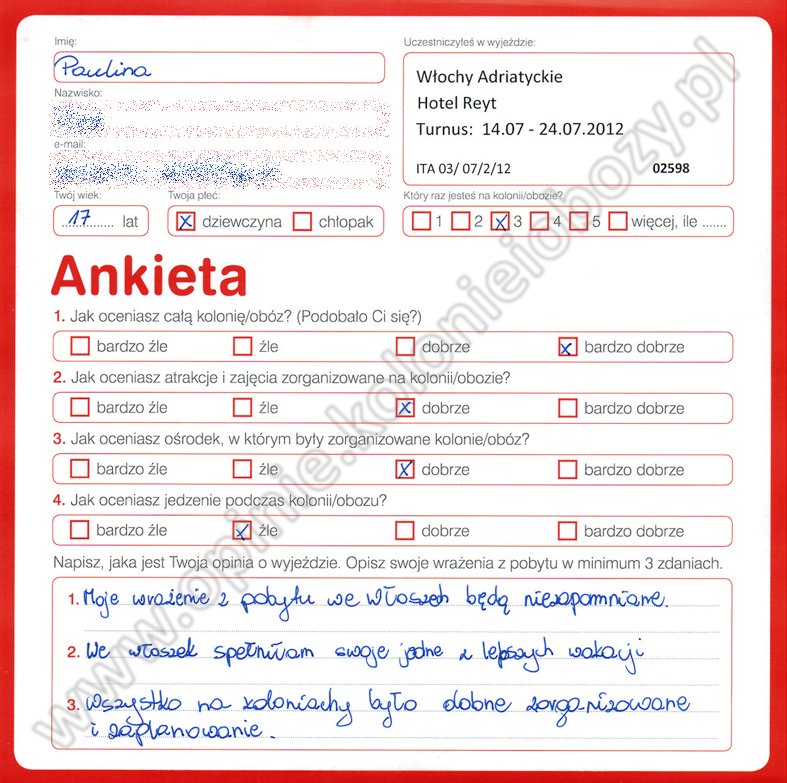 Imię:
Paulina
Uczestniczyłeś w wyjeździe:
Włochy Adriatyckie
Hotel Reyt
Turnus: 14.07 - 24.07.2012
ITA 03/ 07/2/12 02598
Nazwisko:
e-mail:
Twój wiek:
17 lat
Twoja płeć:
x dziewczyna chłopak
Który raz jesteś na kolonii/obozie?
1 2 x 3 4 5 więcej, ile .......
Ankieta
1. Jak oceniasz całą kolonię/obóz? (Podobało Ci się?)
bardzo źle źle dobrze x bardzo dobrze
2. Jak oceniasz atrakcje i zajęcia zorganizowane na kolonii/obozie?
bardzo źle źle x dobrze bardzo dobrze
3. Jak oceniasz ośrodek, w którym były zorganizowane kolonie/obóz?
bardzo źle źle x dobrze bardzo dobrze
4. Jak oceniasz jedzenie podczas kolonii/obozu?
bardzo źle x źle dobrze bardzo dobrze
Napisz, jaka jest Twoja opinia o wyjeździe. Opisz swoje wrażenia z pobytu w minimum 3 zdaniach.
1. Moje wrażenie z pobytu we Włoszech będą niezapomniane.
2. We włoszek spełniłam swoje jedne z lepszych wakacji
3. wszystko na koloniachy było dobne zorganizowane
i zaplanowanie.
www.opinie.kolonieiobozy.pl